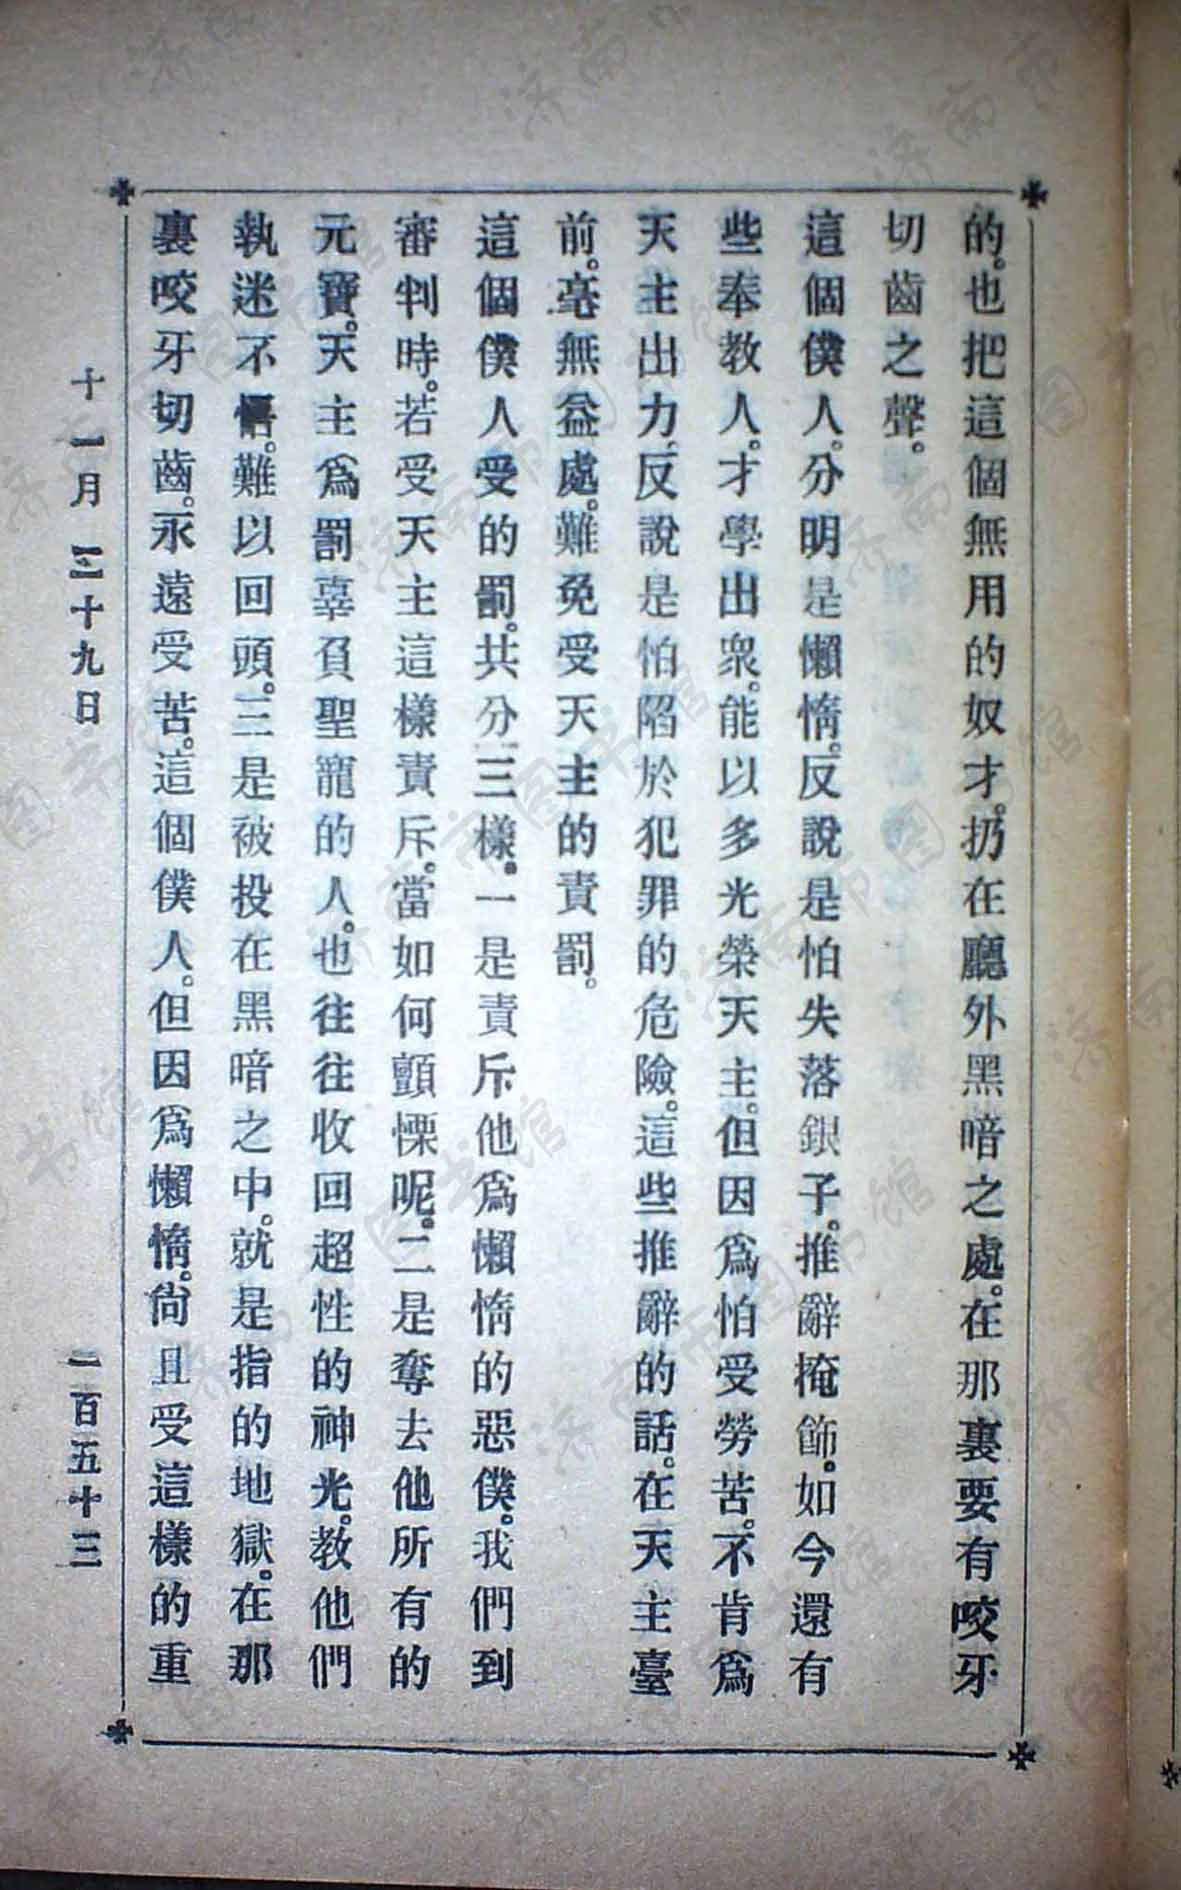 的。也把這個無用的奴才。扔在廳外黑暗之處。在那裏要有咬牙
切齒之聲。
這個僕人。分明是懶惰。反說是怕失落銀子。推辭掩飾。如今還有
些奉教人。才學出衆。能以多光榮天主。但因爲怕受勞苦。不肯爲
天主出力。反說是怕陷於犯罪的危險。這些推辭的話。在天主臺
前。毫無益處。難免受天主的責罰。
這個僕人受的罰。共分三樣。一是責斥他爲懶惰的惡僕。我們到
審判時。若受天主這樣責斥。當如何顫慄呢。二是奪去他所有的
元寶。天主爲罰辜負聖寵的人。也往往收回超性的神光。教他們
執迷不悟。難以回頭。三是被投在黑暗之中。就是指的地獄。在那
裏咬牙切齒。永遠受苦。這個僕人。但因爲懶惰。尙且受這樣的重
十一月 二十九日 二百五十三
济南市图书馆